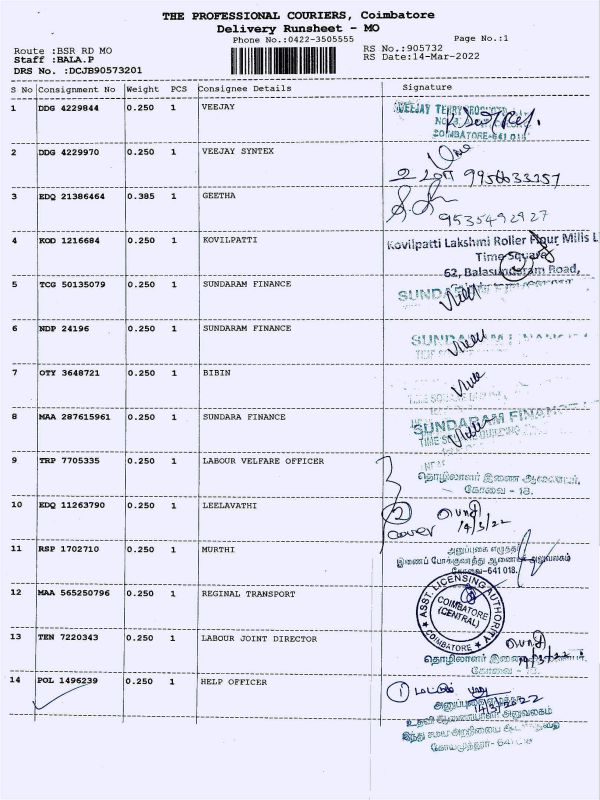 THE PROFESSIONAL COURIERS, Coimbatore
Delivery Runsheet - MO
Phone No.:0422-3505555
Page No.:1
Route :BSR RD MO
RS No.:905732
Staff :BALA.P
RS Date:14-Mar-2022
DRS No. :DCJB90573201
S No Consignment No Weight PCS Consignee Details Signature
1 DDG 4229844 0.250 1 VEEJAY
VEEJAY TERRY
COIMBATORE-641 018
2 DDG 4229970 0.250 1 VEEJAY SYNTEX
3 EDQ 21386464 0.385 1 GEETHA
9535492927
4 KOD 1216684 0.250 1 KOVILPATTI
Kovilpatti Lakshmi Roller Flour Mills L
Time Square
62, Balasundaram Road,
5 TCG 50135079 0.250 1 SUNDARAM FINANCE
6 NDP 24196 0.250 1 SUNDARAM FINANCE
SUNDARAM FINANC
7 OTY 3648721 0.250 1 BIBIN
8 MAA 287615961 0.250 1 SUNDARA FINANCE
SUNDARAM FINANC
9 TRP 7705335 0.250 1 LABOUR VELFARE OFFICER
தொழிலாளர் இணை ஆணையர்,
கோவை - 18.
10 EDQ 11263790 0.250 1 LEELAVATHI
2 cover
14/3/22
11 RSP 1702710 0.250 1 MURTHI
இணைப் போக்குவரத்து ஆணையர் அலுவலகம்
கோவை-641 018.
12 MAA 565250796 0.250 1 REGINAL TRANSPORT
ASST. LICENSING AUTHORITY
COIMBATORE
(CENTRAL)
COIMBATORE
13 TEN 7220343 0.250 1 LABOUR JOINT DIRECTOR
தொழிலாளர் இணை
கோவை - 18.
14 POL 1496239 0.250 1 HELP OFFICER
1 மட்டும்
14/3/2022
உதவி ஆணையாளர் அலுவலகம்